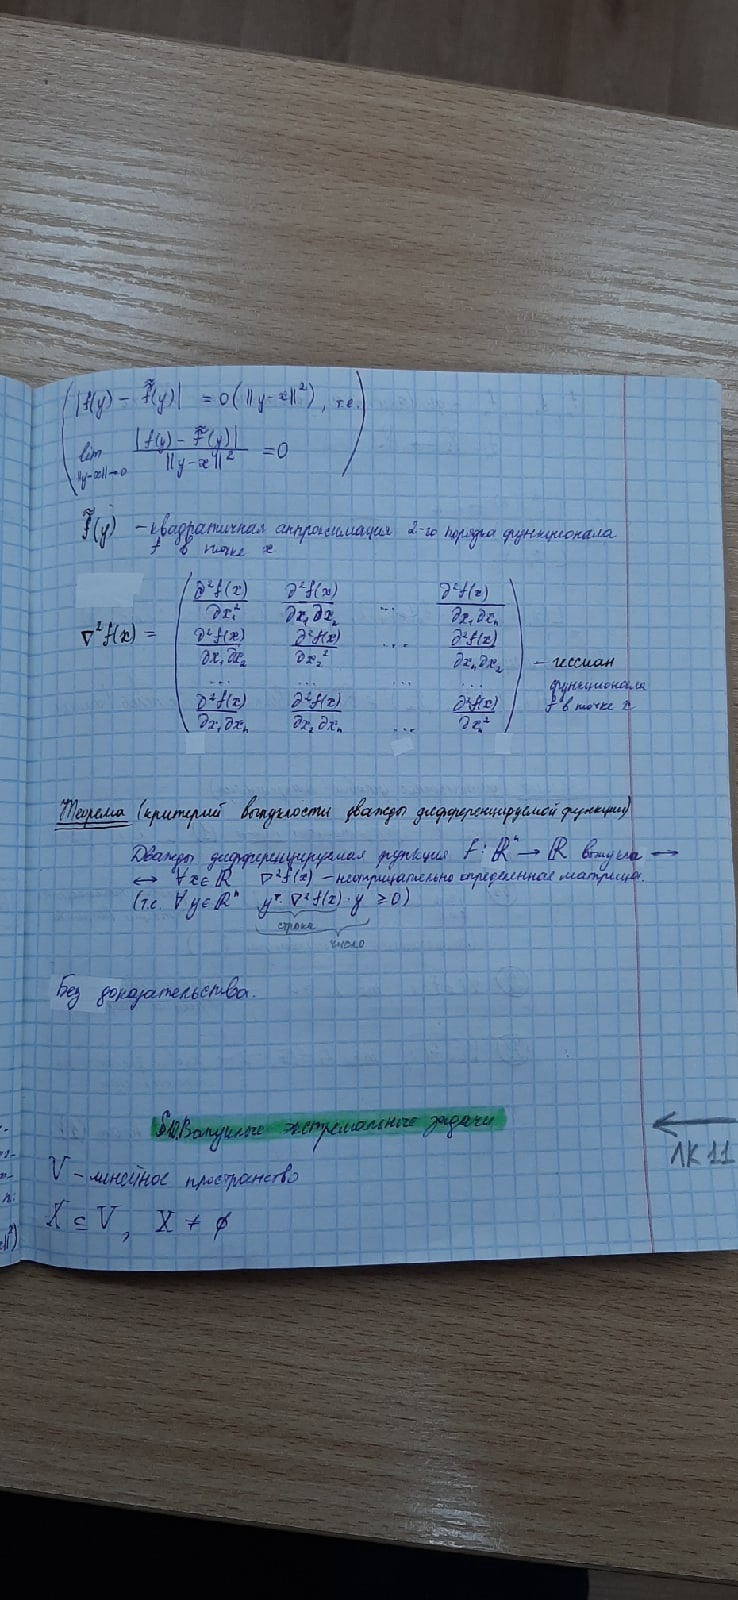 ( |f(y) − f̃̃(y)| = o(‖y−x‖²), т.е.
lim ‖y−x‖→0 |f(y) − f̃̃(y)| / ‖y−x‖² = 0 )
f̃̃(y) – квадратичная аппроксимация 2-го порядка функционала
f в точке x
∂²f(x)/∂x₁² ∂²f(x)/∂x₁∂x₂ ... ∂²f(x)/∂x₁∂xₙ
∇²f(x) = ∂²f(x)/∂x₁∂x₂ ∂²f(x)/∂x₂² ... ∂²f(x)/∂xₙ∂x₂ – гессиан
... ... ... ... функционала
∂²f(x)/∂x₁∂xₙ ∂²f(x)/∂x₂∂xₙ ... ∂²f(x)/∂xₙ² f в точке x
Теорема (критерий выпуклости дважды дифференцируемой функции)
Дважды дифференцируемая функция f: ℝⁿ → ℝ выпукла ↔
↔ ∀x∈ℝ ∇²f(x) – неотрицательно определенная матрица.
(т.е. ∀y∈ℝⁿ yᵀ·∇²f(x)·y ≥ 0)
строка
число
Без доказательства.
§10. Выпуклые экстремальные задачи
ЛК 11
V – линейное пространство
X ⊆ V, X ≠ ∅